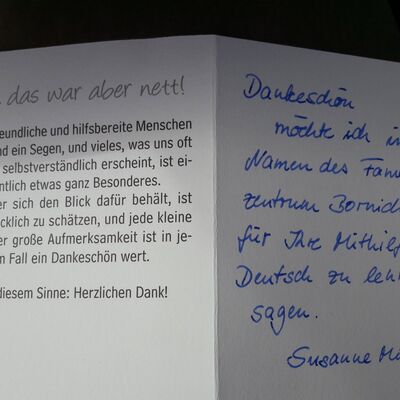 das war aber nett!
eundliche und hilfsbereite Menschen
nd ein Segen, und vieles, was uns oft
selbstverständlich erscheint, ist ei-
entlich etwas ganz Besonderes.
er sich den Blick dafür behält, ist
cklich zu schätzen, und jede kleine
er große Aufmerksamkeit ist in je-
m Fall ein Dankeschön wert.
diesem Sinne: Herzlichen Dank!
Dankeschön
möchte ich i
Namen des Fam
zentrum Bornid
für Ihre Mithilf
Deutsch zu leh
sagen.
Susanne